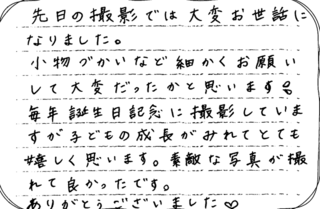 先日の撮影では大変お世話に
なりました。
小物づかいなど細かくお願い
して大変だったかと思います
毎年誕生日記念に撮影していま
すが子どもの成長がみれてとても
嬉しく思います。素敵な写真が撮
れて良かったです。
ありがとうございました♡